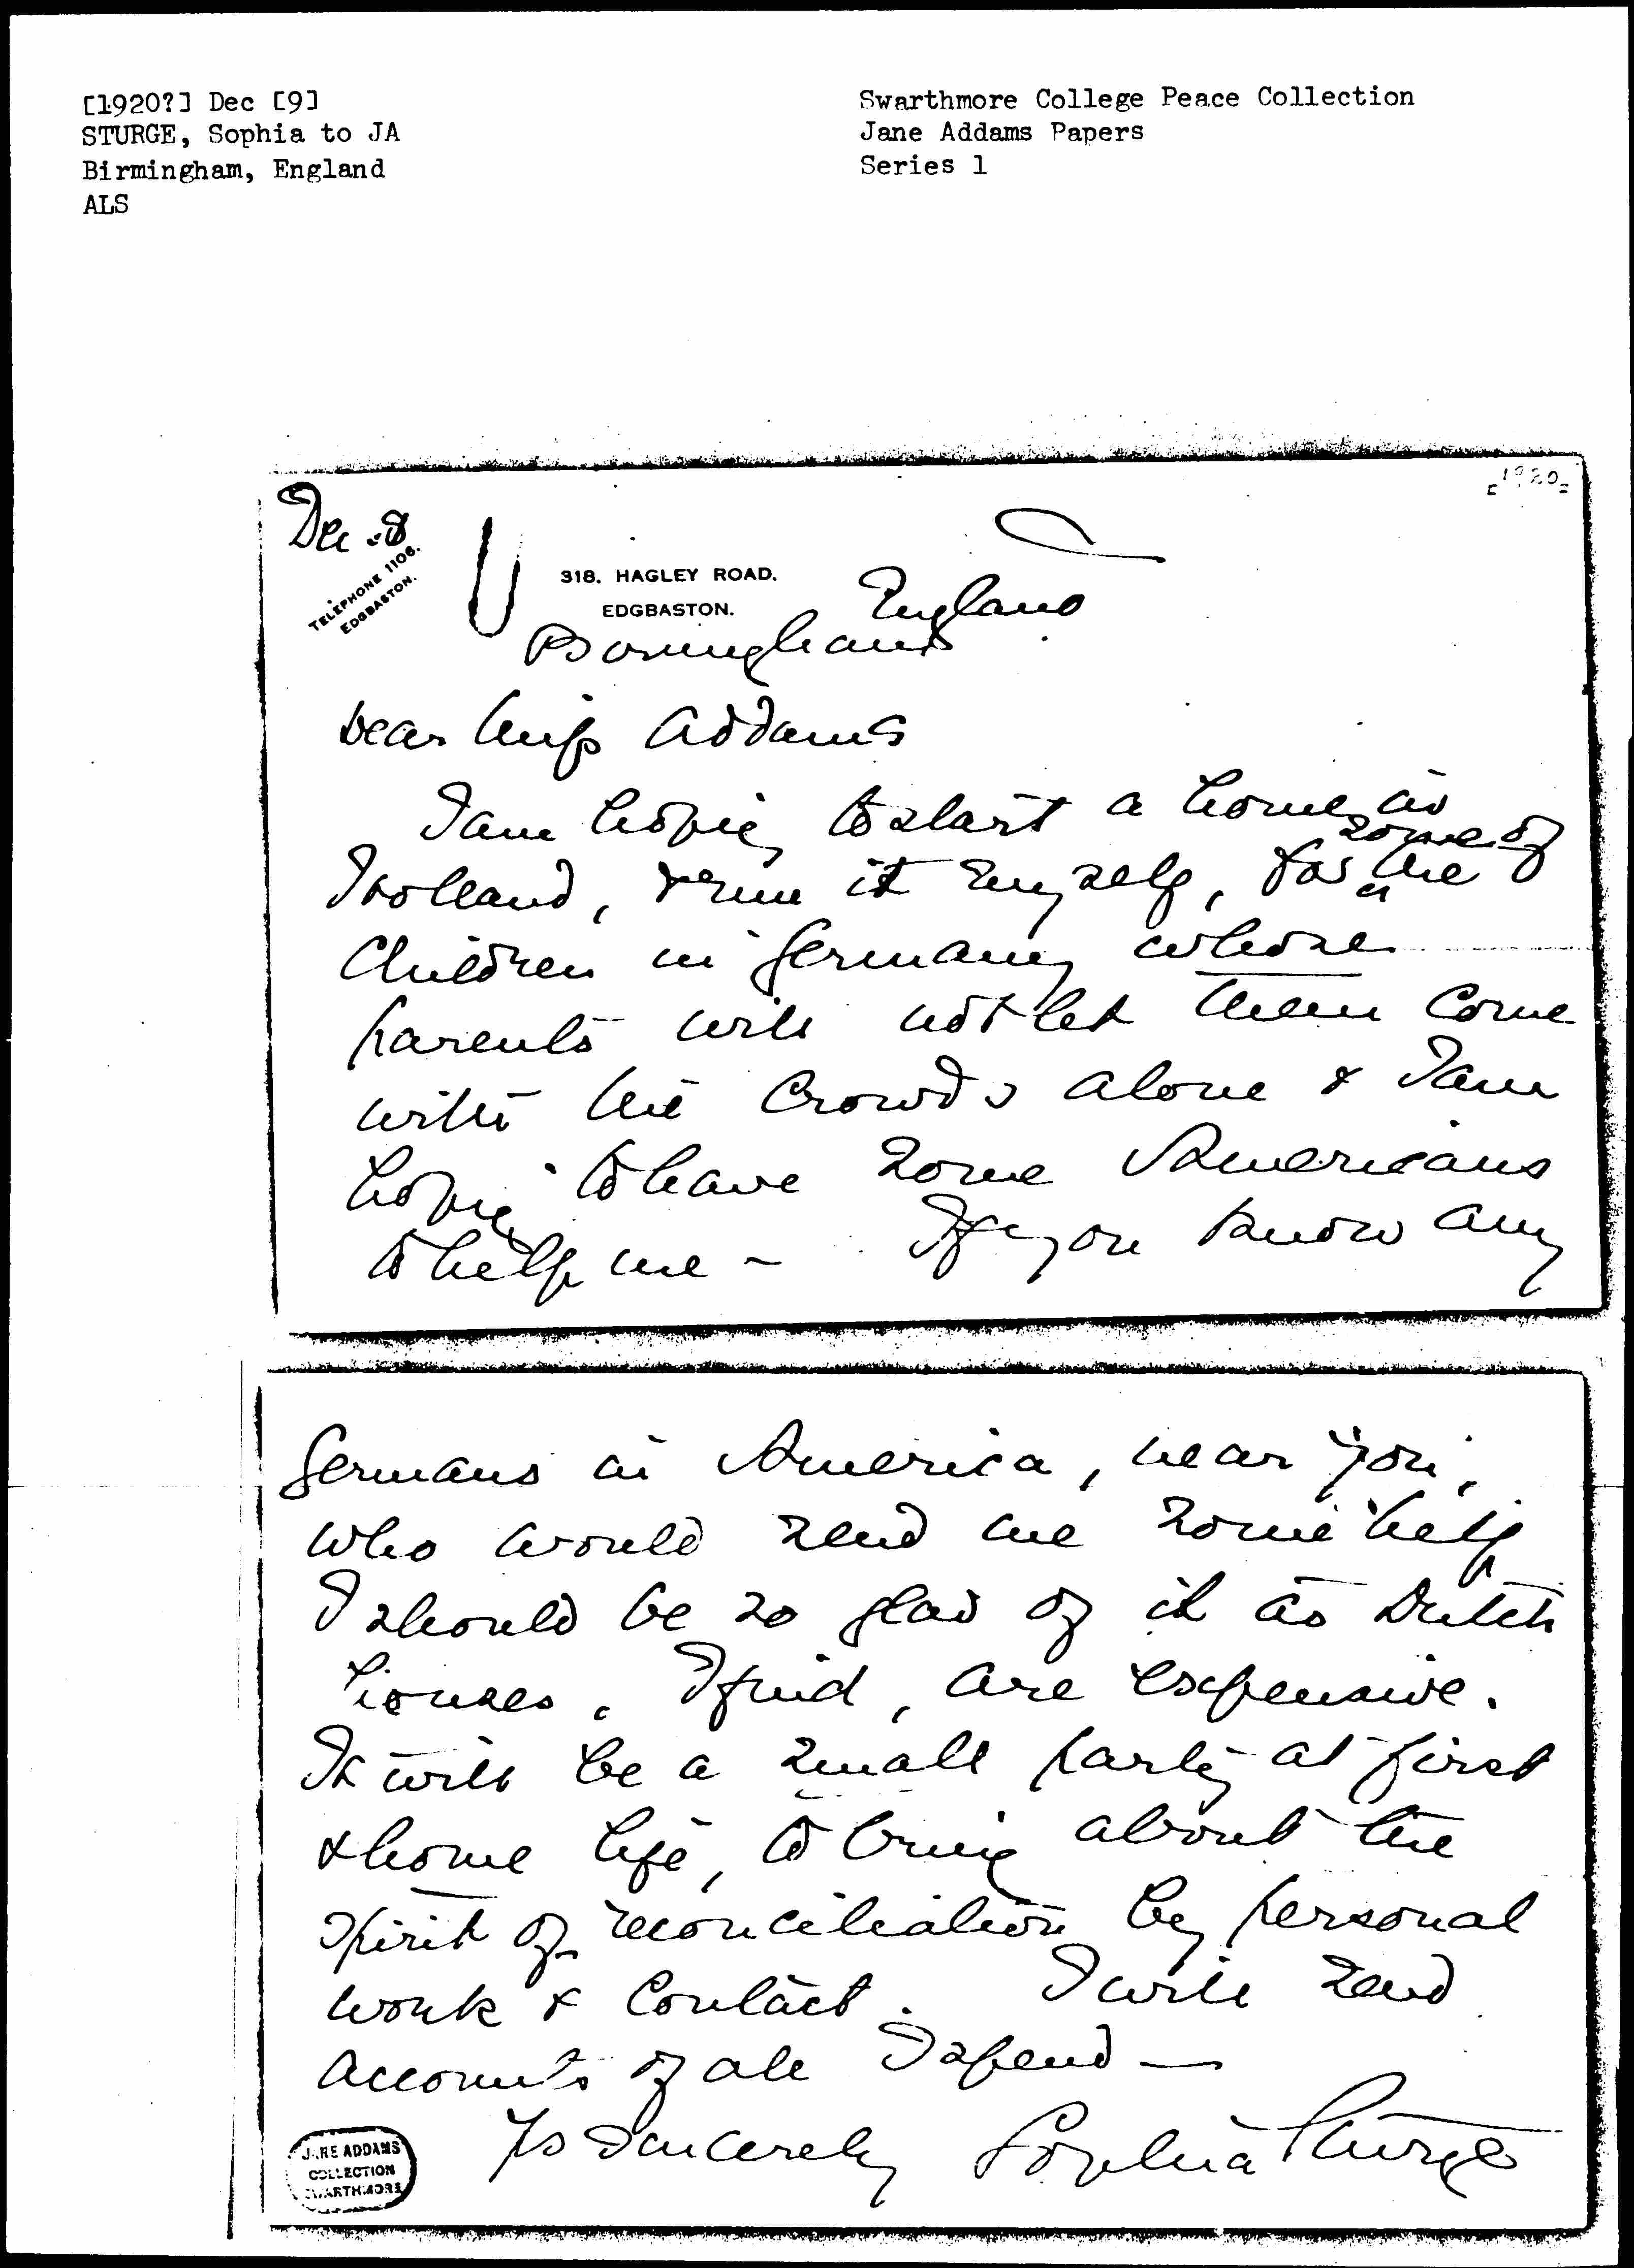 [1920?] Dec [9]
STURGE, Sophia to JA
Birmingham, England
ALS
Swarthmore College Peace Collection
Jane Addams Papers
Series 1
[1920]
Dec. 8
TELEPHONE 1106.
EDGBASTON.
318. HAGLEY ROAD.
EDGBASTON.
England
Birmingham
Dear Miss Addams
I am hoping to start a home in
some of
Holland, & run it myself, for the
children in Germany whose
parents will not let them come
with the crowds alone & I am
hoping to have some Americans
to help me – If you know any
Germans in America, near you,
who would send me some help
I should be so glad of it as Dutch
houses, I find, are expensive.
It will be a small party at first
& home life, to bring about the
spirit of reconciliation by personal
work & contact. I will send
accounts of all I spend —
Yrs sincerely Sophia Sturge
JANE ADDAMS
COLLECTION
SWARTHMORE